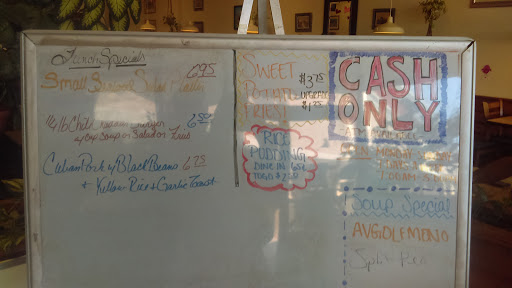 Lunch Specials
Small Seafood Salad Platter 6.95
1/4 lb Chili Cheese Burger 6.50
w/cup Soup or Salad or Fries
Cuban Pork w/ Black Beans 6.75
+ Yellow Rice + Garlic Toast
SWEET
POTATO
FRIES
$3.75
UPGRADE
RICE
PUDDING
DINE IN
TOGO
CASH
ONLY
MONDAY
7:00AM
Soup Special
AVGOLEMONO
Split Pea